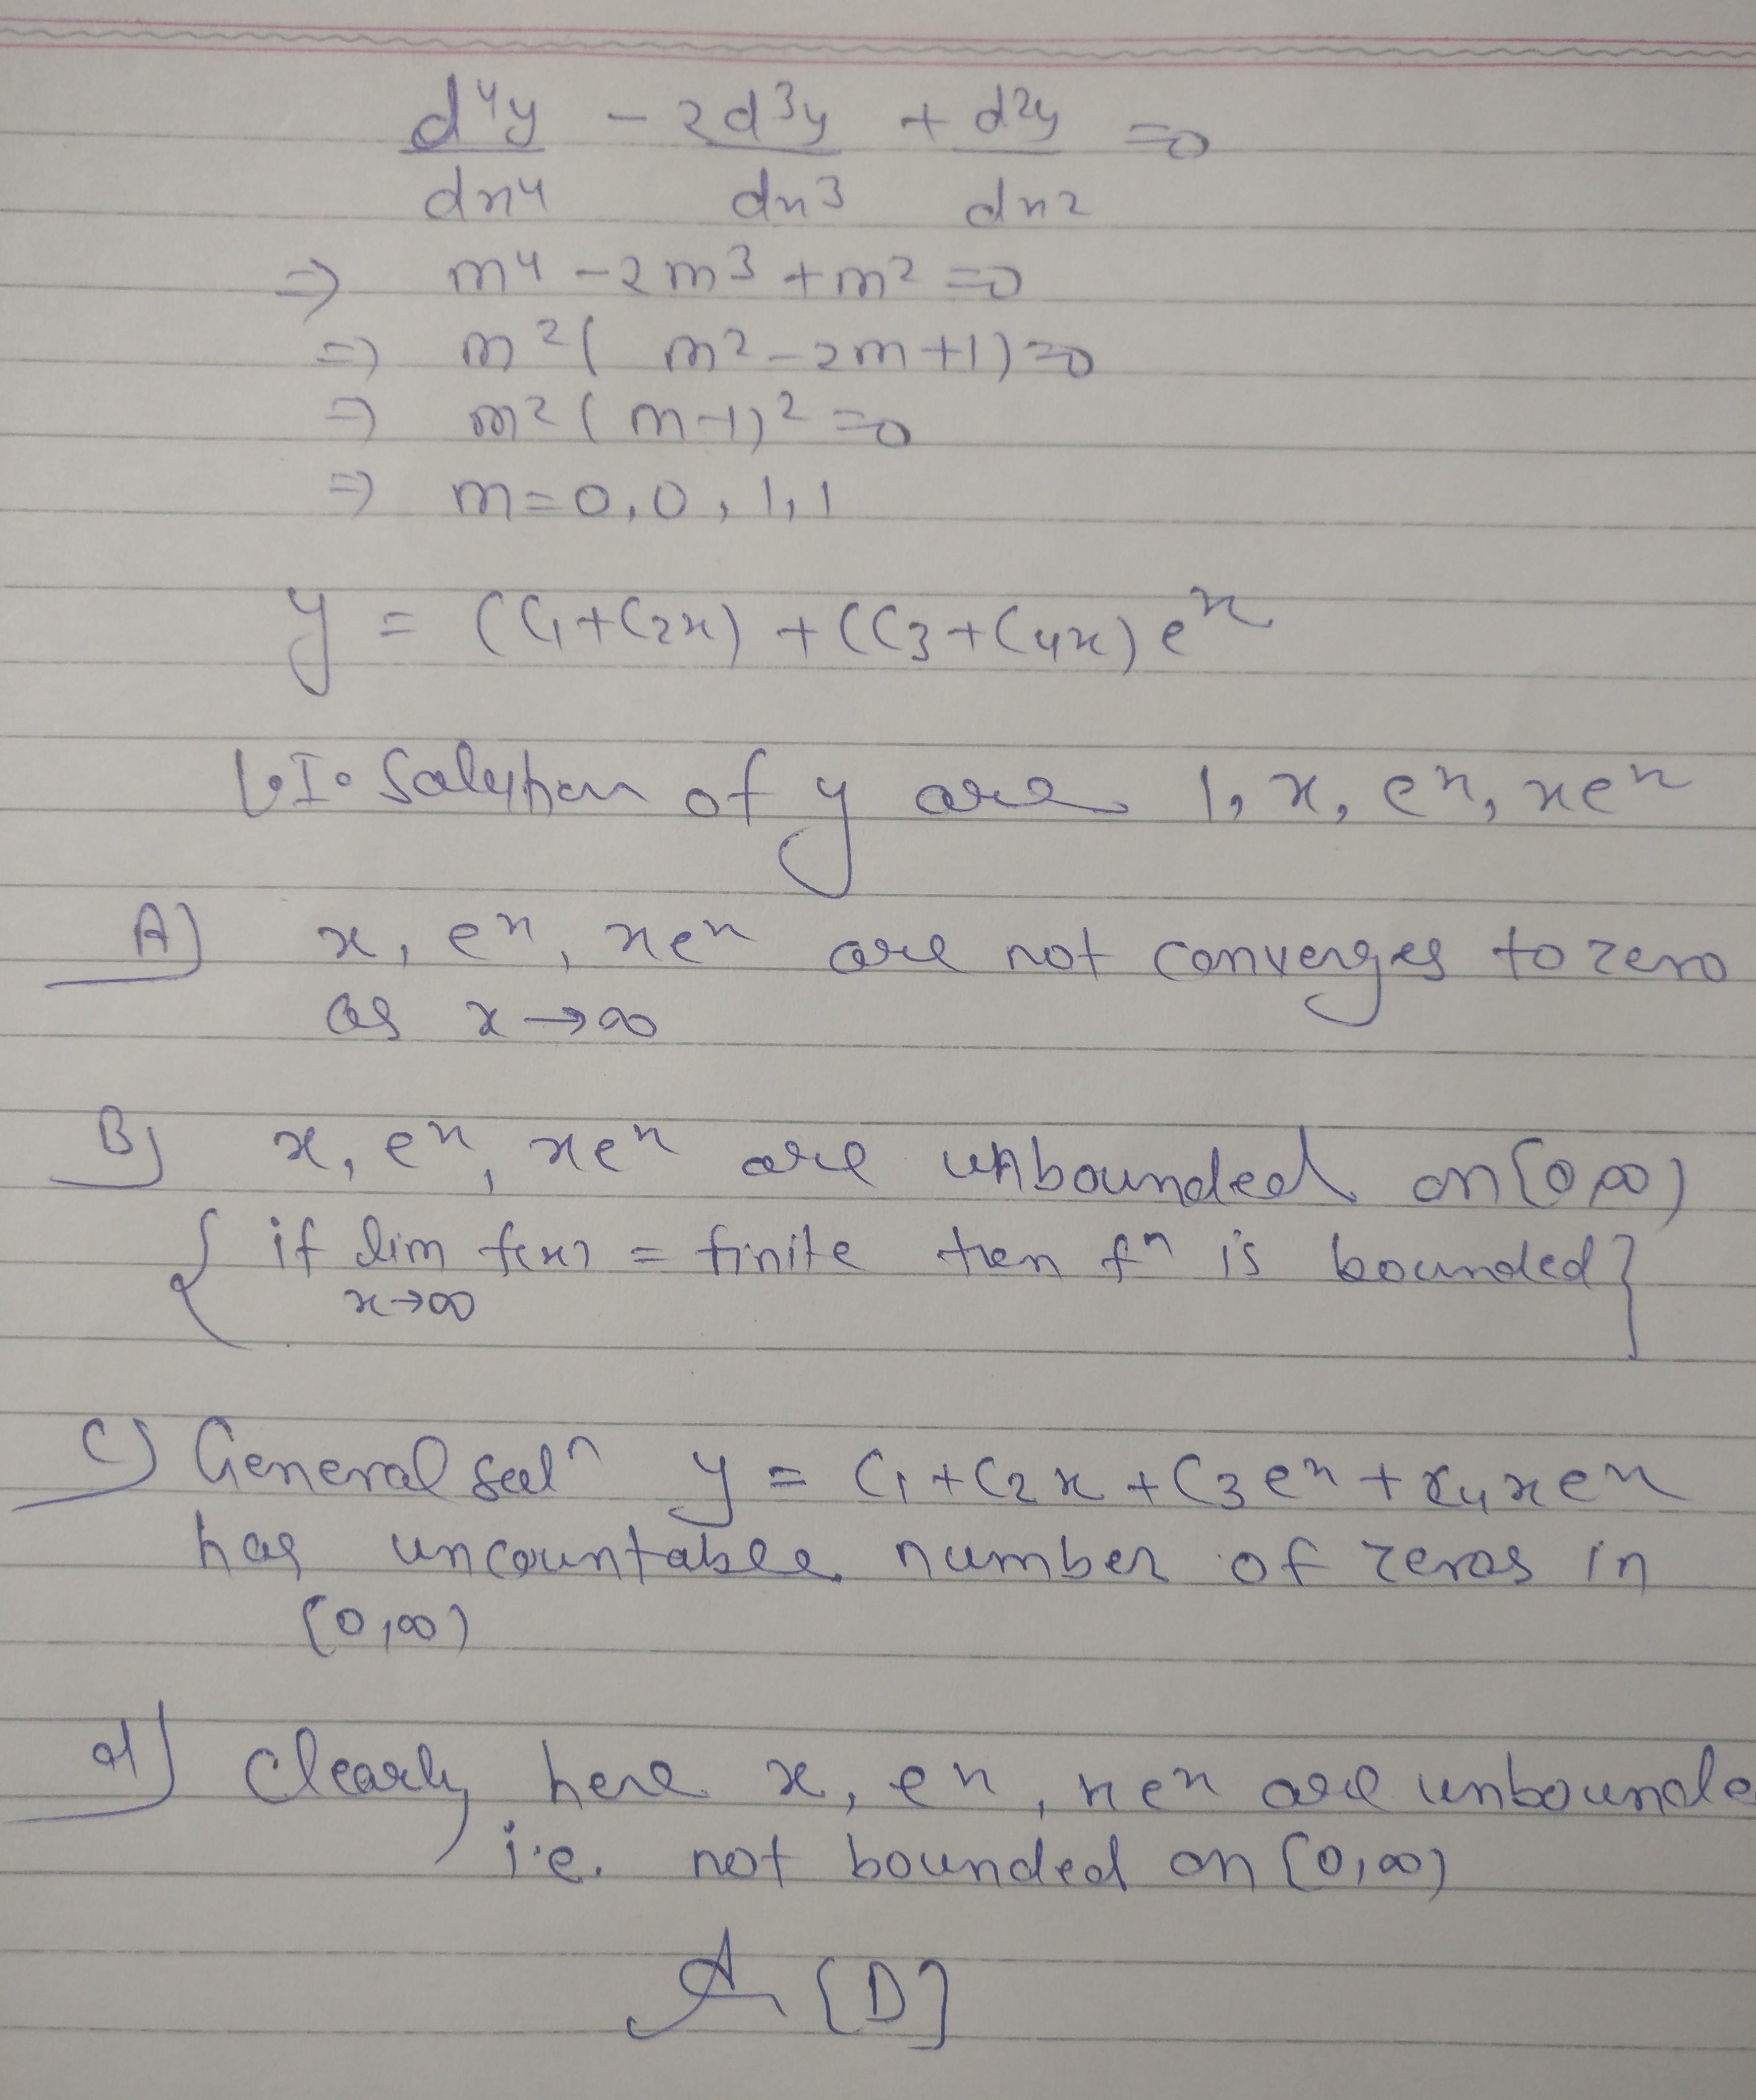 d⁴y/dx⁴ - 2d³y/dx³ + d²y/dx² = 0
⇒ m⁴ - 2m³ + m² = 0
⇒ m²( m² - 2m + 1) = 0
⇒ m² ( m-1)² = 0
⇒ m = 0, 0, 1, 1
y = (C₁ + C₂x) + (C₃ + C₄x) eˣ
L.I. Solution of y are 1, x, eˣ, xeˣ
A) x, eˣ, xeˣ are not converges to zero
as x → ∞
B) x, eˣ, xeˣ are unbounded on [0,∞)
{ if lim x→∞ f(x) = finite then fⁿ is bounded }
C) General solⁿ y = C₁ + C₂x + C₃eˣ + C₄xeˣ
has uncountable number of zeros in
[0,∞)
d) Clearly here x, eˣ, xeˣ are unbounde
i.e. not bounded on [0,∞)
A [D]